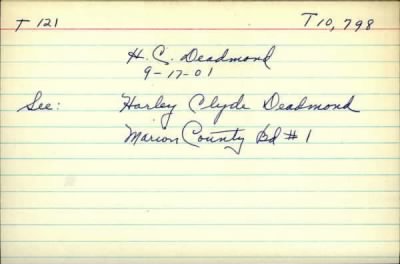 T 121 T10,798
H. C. Deadmond
9-17-01
See: Harley Clyde Deadmond
Marion County Bd #1